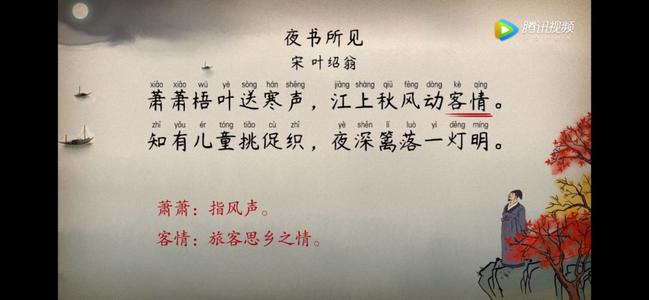 腾讯视频
夜书所见
宋 叶绍翁
xiāo xiāo wú yè sòng hán shēng jiāng shàng qiū fēng dòng kè qíng
萧萧梧叶送寒声，江上秋风动客情。
zhī yǒu ér tóng tiǎo cù zhī yè shēn lí luò yì dēng míng
知有儿童挑促织，夜深篱落一灯明。
萧萧：指风声。
客情：旅客思乡之情。